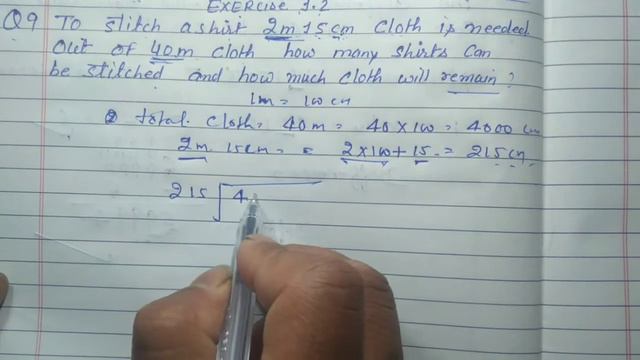 EXERCISE 1.2
Q9 To stitch a shirt 2m 15cm cloth is needed
Out of 40m cloth how many shirts can
be stitched and how much cloth will remain?
1m = 100 cm
total cloth = 40m = 40×100 = 4000 cm
2m 15cm = = 2×100 + 15 = 215 cm
215 4